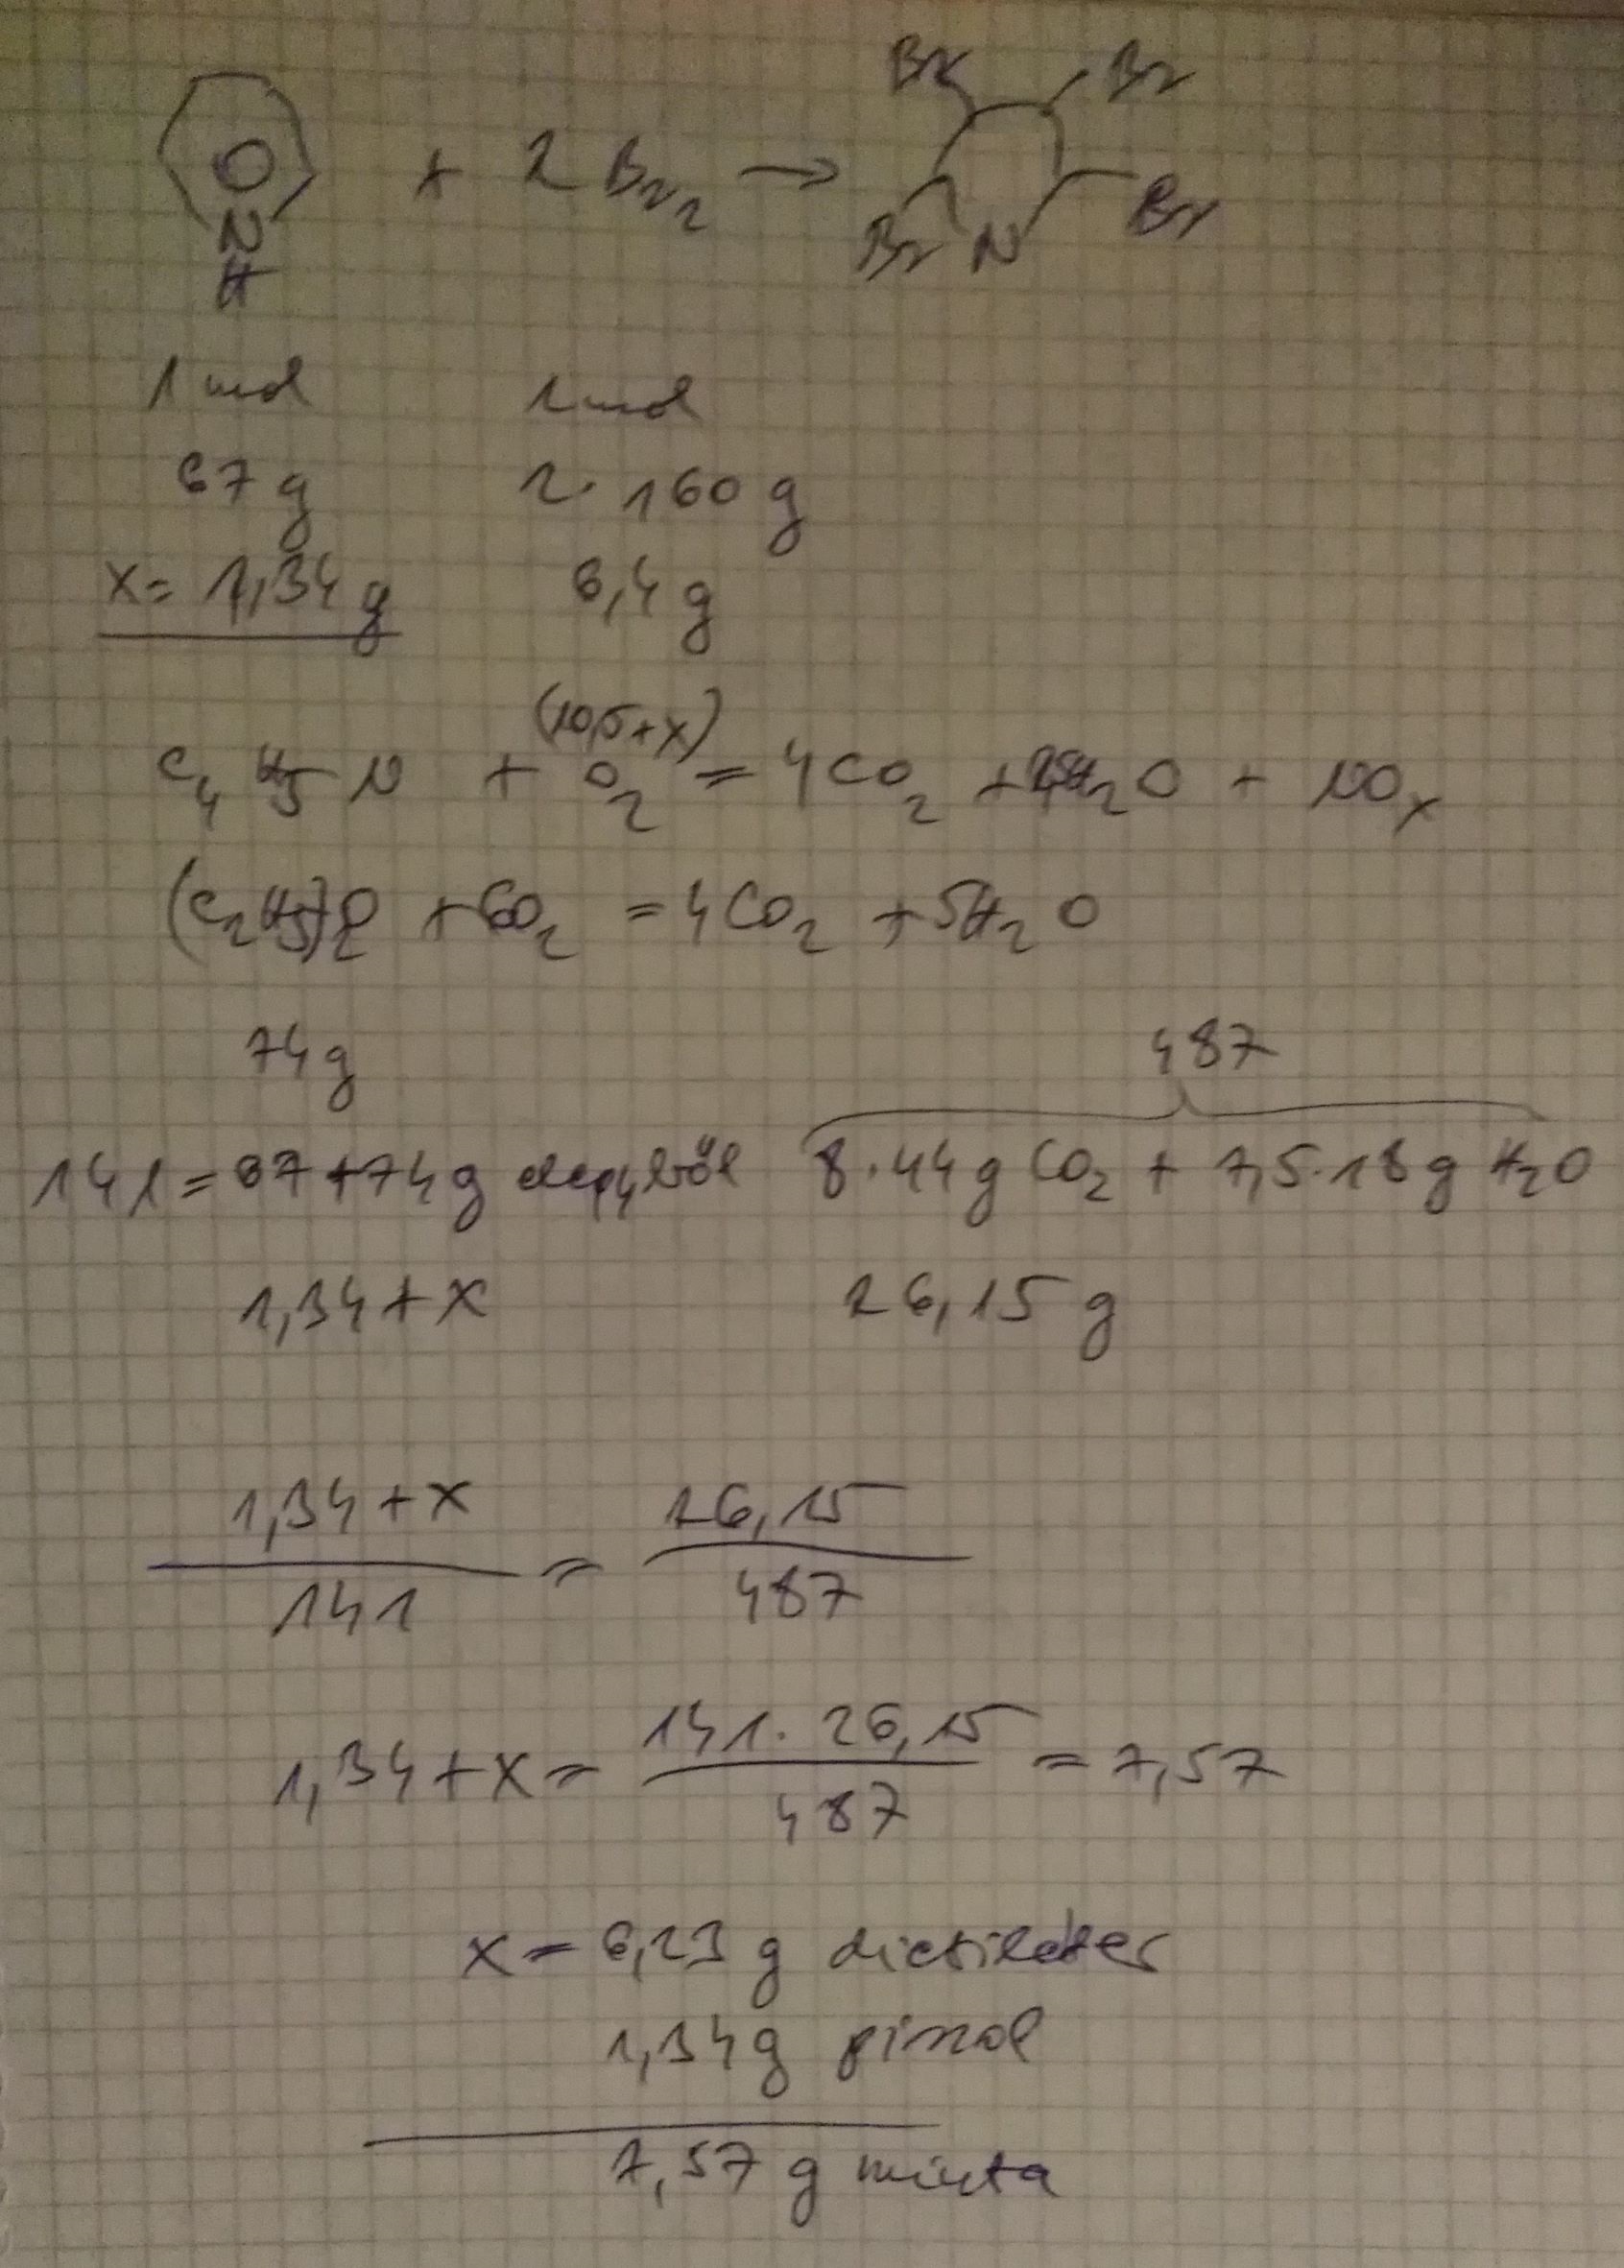 O N H + 2 Br₂ → Br Br Br Br N
1 mol 2 mol
67 g 2 · 160 g
x = 1,34 g 6,4 g
(10,5+x)
C₄H₅N + O₂ = 4CO₂ + 2,5H₂O + NOₓ
(C₂H₅)₂O + 6O₂ = 4CO₂ + 5H₂O
74 g 487
141 = 67 + 74 g elegyből 8·44 g CO₂ + 7,5·18 g H₂O
1,34 + x 26,15 g
(1,34 + x)/141 = 26,15/487
1,34 + x = (141 · 26,15)/487 = 7,57
x = 6,23 g dietiléter
1,34 g pirrol
7,57 g minta